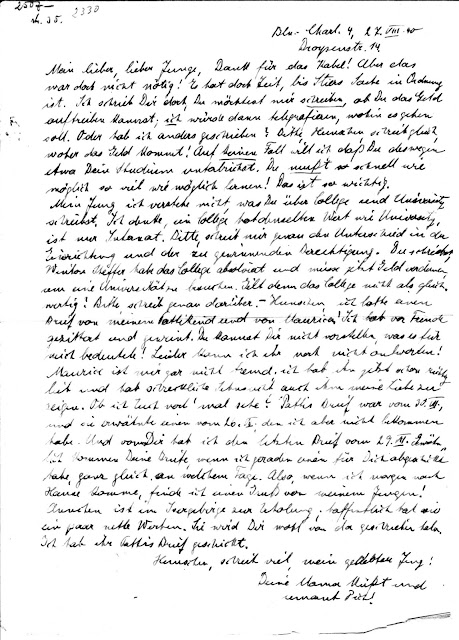 2330
Bln.- Charl. 4, 27. VIII. 40
Droysenstr. 14
Mein lieber, lieber Junge, Dank für das Kabel! Aber das
war doch nicht nötig! Es hat doch Zeit, bis Sache in Ordnung
ist. Ich schrieb Dir doch, Du möchtest mir schreiben, ob Du das Geld
auftreiben kannst; ich würde dann telegrafieren, wohin es gehen
soll. Oder hab ich anders geschrieben? Bitte schreib gleich
woher das Geld kommt! Auf keinen Fall will ich daß Du deswegen
etwa Dein Studium unterbrichst. Du mußt so schnell wie
möglich so viel wie möglich lernen! Das ist so wichtig.
Mein Jung ich verstehe nicht was Du über College und University
schreibst. Ich denke, ein College hat denselben Wert wie University,
ist nur Internat. Bitte, schreib mir genau den Unterschied in der
Einrichtung und der zu gewinnenden Berechtigung. Du schriebst
habe das College absolviert und müsse jetzt Geld verdienen,
um eine Universität zu besuchen. Gilt denn das College nicht als gleich-
wertig? Bitte schreib genau darüber. - ich hatte einen
Brief von meinem und von Maurice! Ich hab vor Freude
gezittert und geweint. Du kannst Dir nicht vorstellen, was es für
mich bedeutete! Leider kann ich ihr noch nicht antworten!
Maurice ist mir gar nicht fremd. ich hab ihn jetzt schon richtig
lieb und hab schreckliche Sehnsucht auch ihm meine Liebe zu
zeigen. Ob ich Euch noch mal sehe? Pattis Brief war vom 30. VII.,
und sie erwähnte einen vom den ich aber nicht bekommen
habe. Und von Dir hab ich den letzten Brief vom 29.
kommen Deine Briefe, wenn ich gerade einen für Dich abgeschickt
habe, ganz gleich, an welchem Tage. Also, wenn ich morgen nach
Hause komme, finde ich einen Brief von meinem Jungen!
ist im Isergebirge zur Erholung. hoffentlich hat sie
ein paar nette Wochen. Sie wird Dir wohl von da geschrieben haben.
Ich hab ihr Pattis Brief geschickt.
schreib viel, mein geliebter Jung!
Deine Mama küßt und
umarmt Dich!